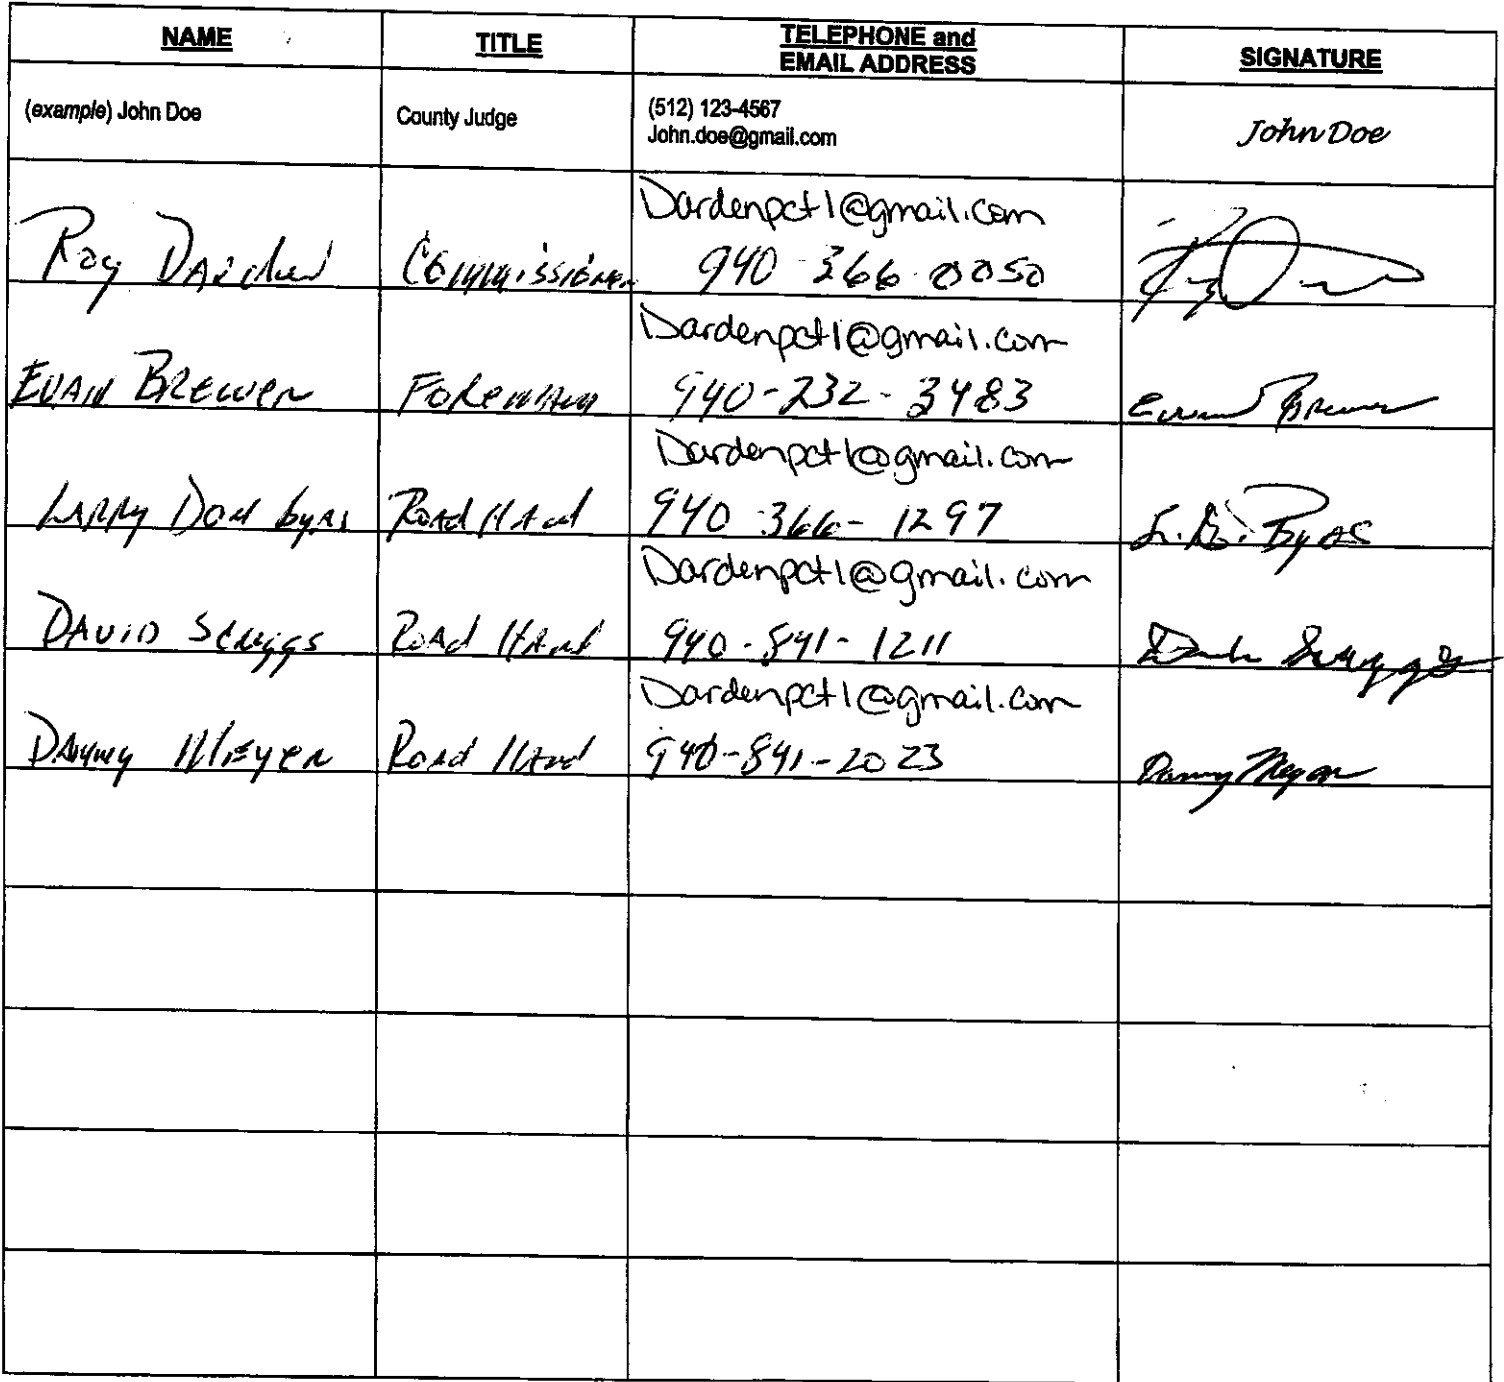 NAME
TITLE
TELEPHONE and
EMAIL ADDRESS
SIGNATURE
(example) John Doe
County Judge
(512) 123-4567
John.doe@gmail.com
John Doe
Roy Darden
Commissioner
Dardenpct1@gmail.com
940-366-0050
Evan Brewer
Foreman
Dardenpct1@gmail.com
940-232-3483
Evan Brewer
Larry Don byas
Road Hand
Dardenpct1@gmail.com
940-366-1297
L.D. Byas
David Scruggs
Road Hand
Dardenpct1@gmail.com
940-841-1211
Scruggs
Danny Meyer
Road Hand
Dardenpct1@gmail.com
940-841-2023
Danny